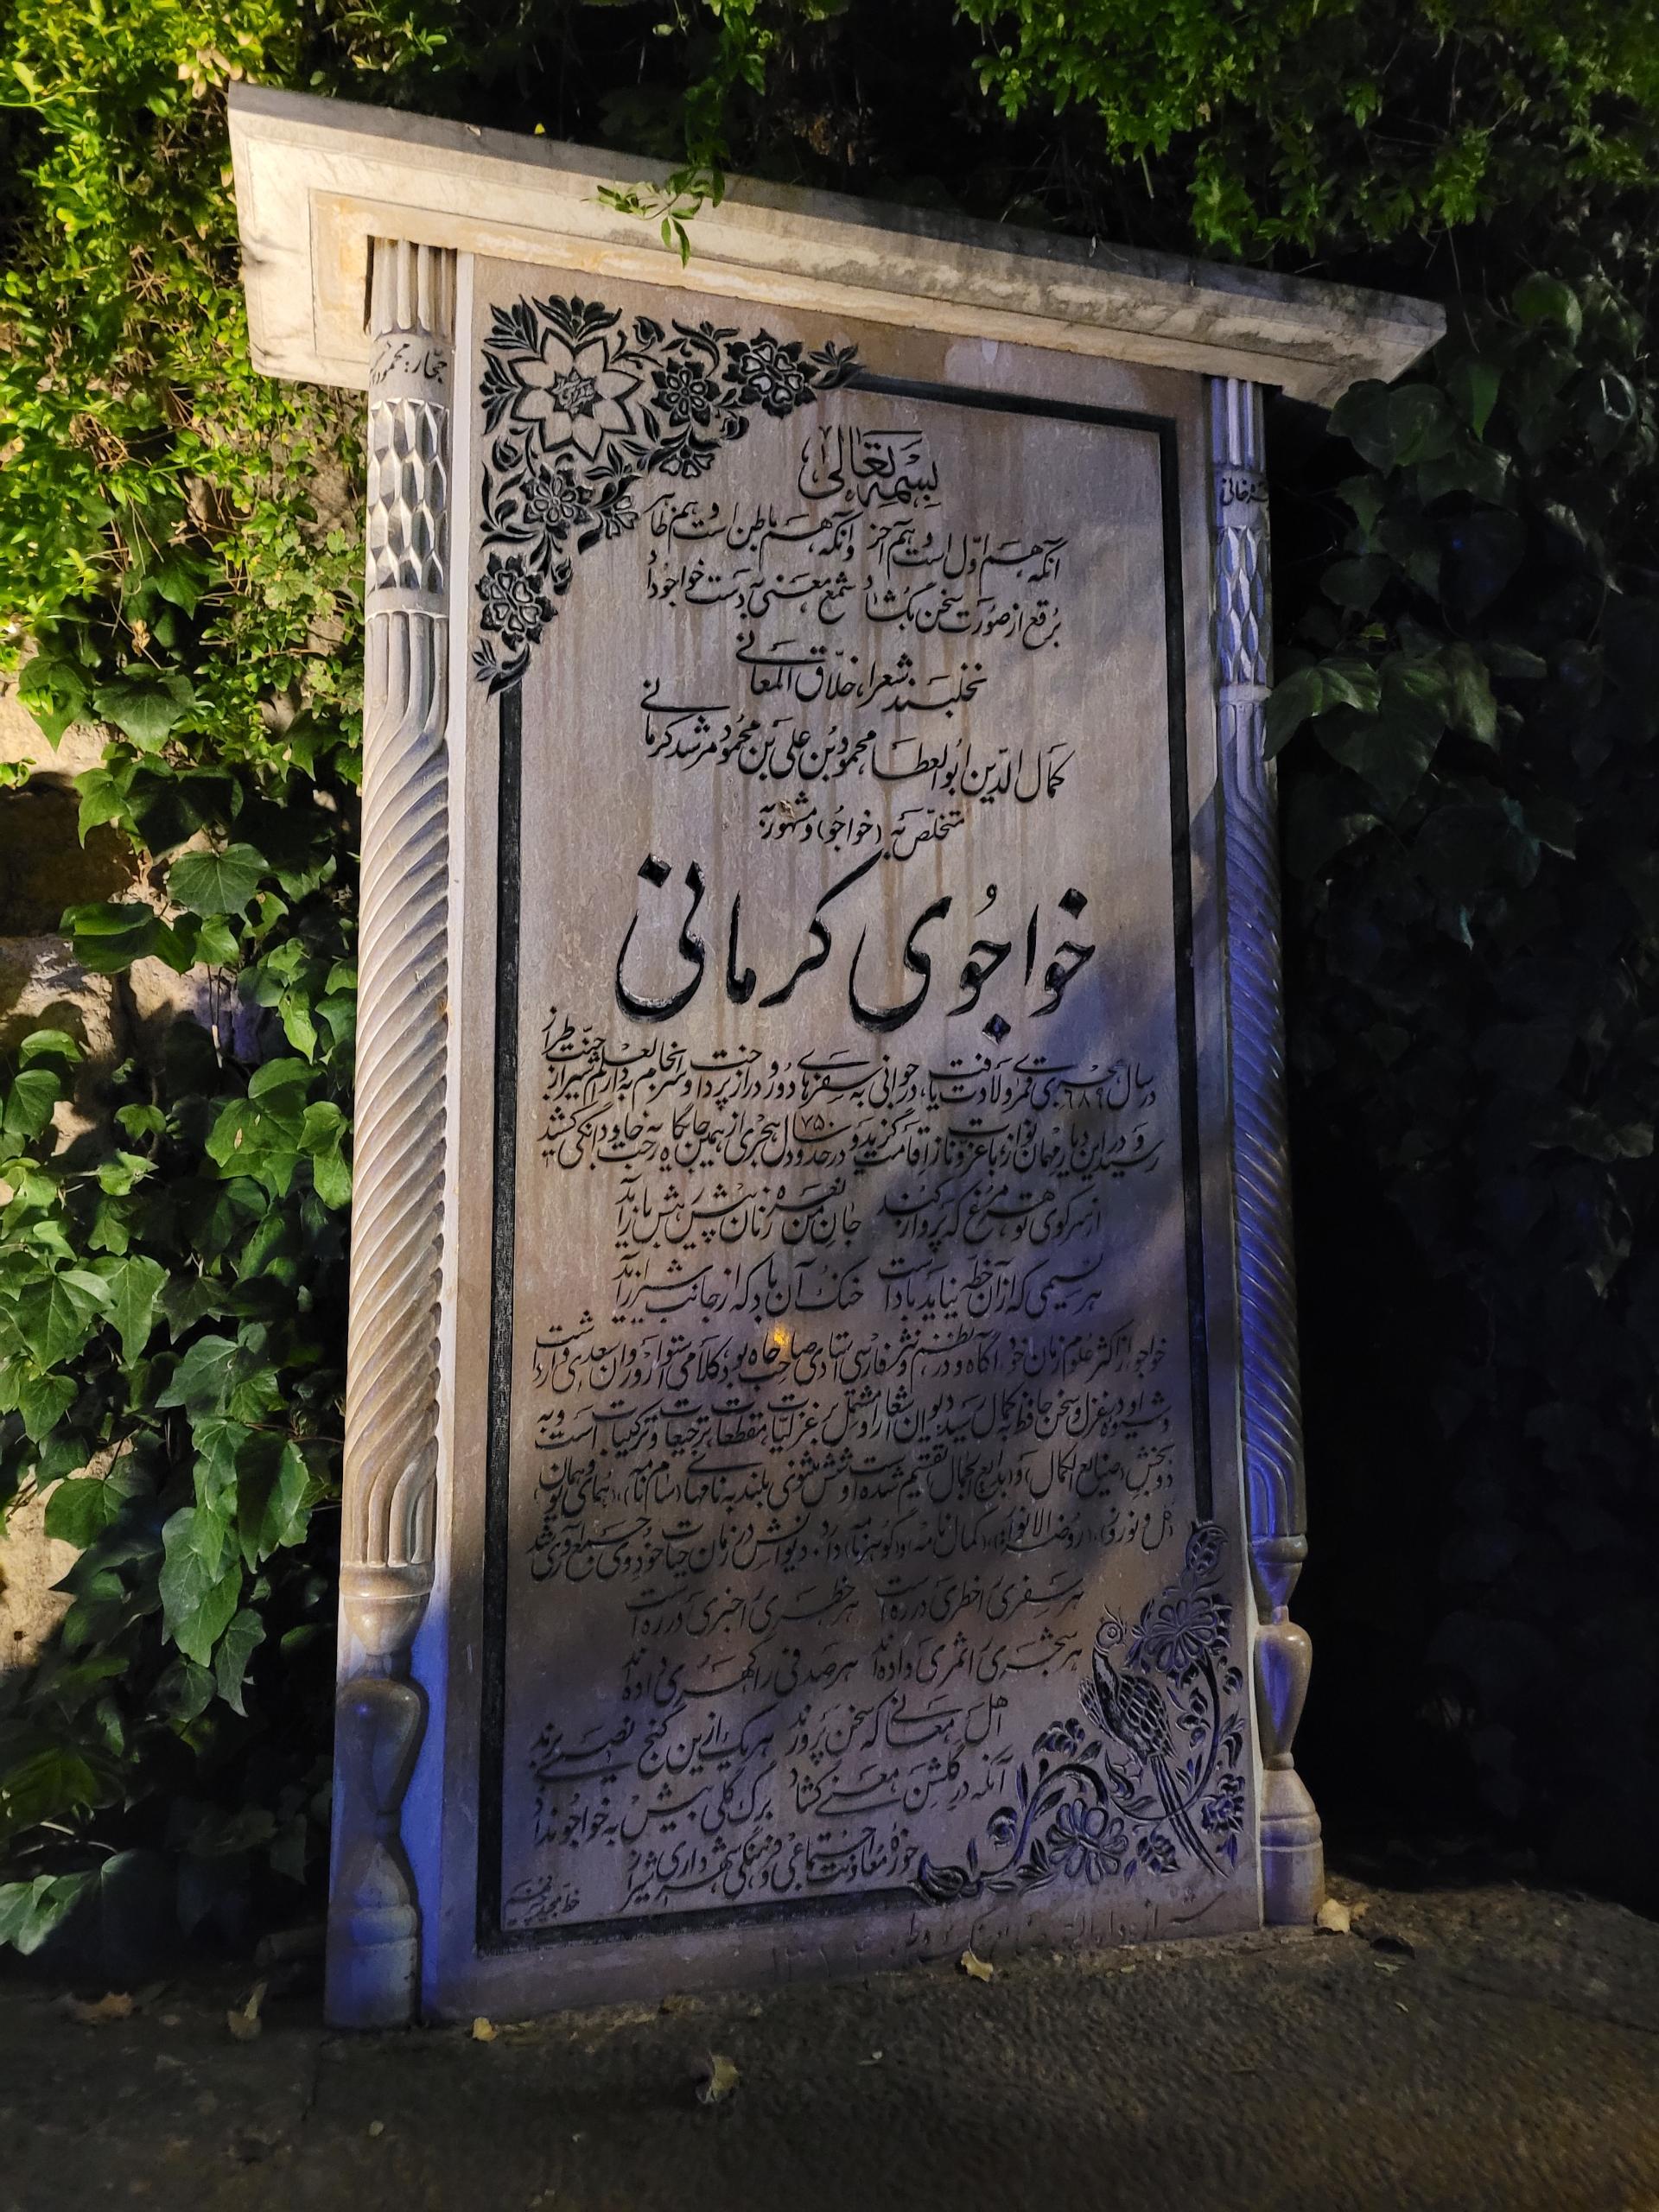 حجّار: محمود
بسمه تعالی
آنکه هم اوّل است و هم آخر وانکه هم باطن است و هم ظاهر
برقع از صورت سخن بگشاد شمع معنی به دست خواجو داد
نخلبند شعرا، خلّاق المعانی
کمال الدّین ابوالعطا محمود بن علی بن محمود مرشد کرمانی
متخلّص به (خواجو) و مشهور به
خواجوی کرمانی
در سال ۶۸۹ هجری قمری ولادت یافت، در جوانی به سفرهای دور و دراز پرداخت و سرانجام به دارالعلم شیراز جنّت طراز
رسید و در این دیار مهمان نواز با عز و ناز اقامت گزید و در حدود سال ۷۵۰ هجری از همین جایگاه به جاودانگی رخت کشید
از سر کوی تو هر مرغ که پرواز کند جان من نعره زنان پیش رهش باز آید
هر نسیمی که از آن خطه نیاید باد است خنک آن باد که از جانب شیراز آید
خواجو از اکثر علوم زمان خود آگاه و در نظم و نثر فارسی استادی صاحب جاه بود کلامی استوار و روان سعدی وار داشت
و شیوه او در غزل و سخن حافظ به کمال رسید. دیوان اشعار او مشتمل بر غزلیات، مقطعات، ترجیعات و ترکیبات است و به
دو بخش (صنایع الکمال) و (بدایع الجمال) تقسیم شده است او شش مثنوی بلند به نامهای (سام نامه)، (همای و همایون)،
(گل و نوروز)، (روضة الانوار)، (کمال نامه) و (گوهر نامه) دارد. دیوانش در زمان حیات خود وی جمع آوری شد
هر سفری را خطری در ره است هر خطری را خبری در ره است
هر شجری را ثمری داده‌اند هر صدفی را گهری داده‌اند
اهل معانی که سخن پرورند هر یک از این گنج نصیبی برند
آنکه در گلشن معنی گشاد برگ گلی بیش به خواجو نداد
حوزه معاونت اجتماعی و فرهنگی شهرداری شیراز